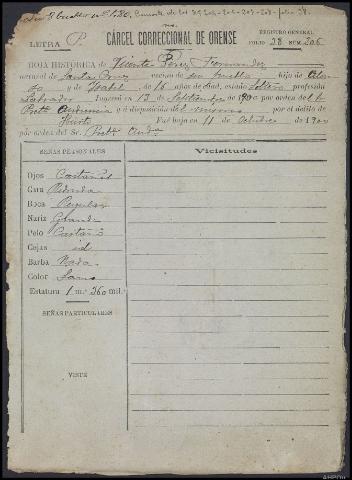 LETRA P.
CÁRCEL CORRECCIONAL DE ORENSE
REGISTRO GENERAL
FOLIO 28 NUM. 206
HOJA HISTÓRICA de Vicente Perez Fernandez
natural de Santa Cruz vecino de su pueblo hijo de
y de Isabel de 16 años de edad, estado soltero profesión
Labrador Ingresó en 13 de Septiembre de 1900 por orden del
Audiencia y á disposición del mismo por el delito de
Hurto Fué baja en 11 de Octubre de 1900
por orden del Sr.
SEÑAS PERSONALES
Vicisitudes
Ojos Castaños
Cara Redonda
Boca Regular
Nariz Grande
Pelo Castaño
Cejas id
Barba Nada
Color Sano
Estatura 1 m. 360 mil.
SEÑAS PARTICULARES
VISTE